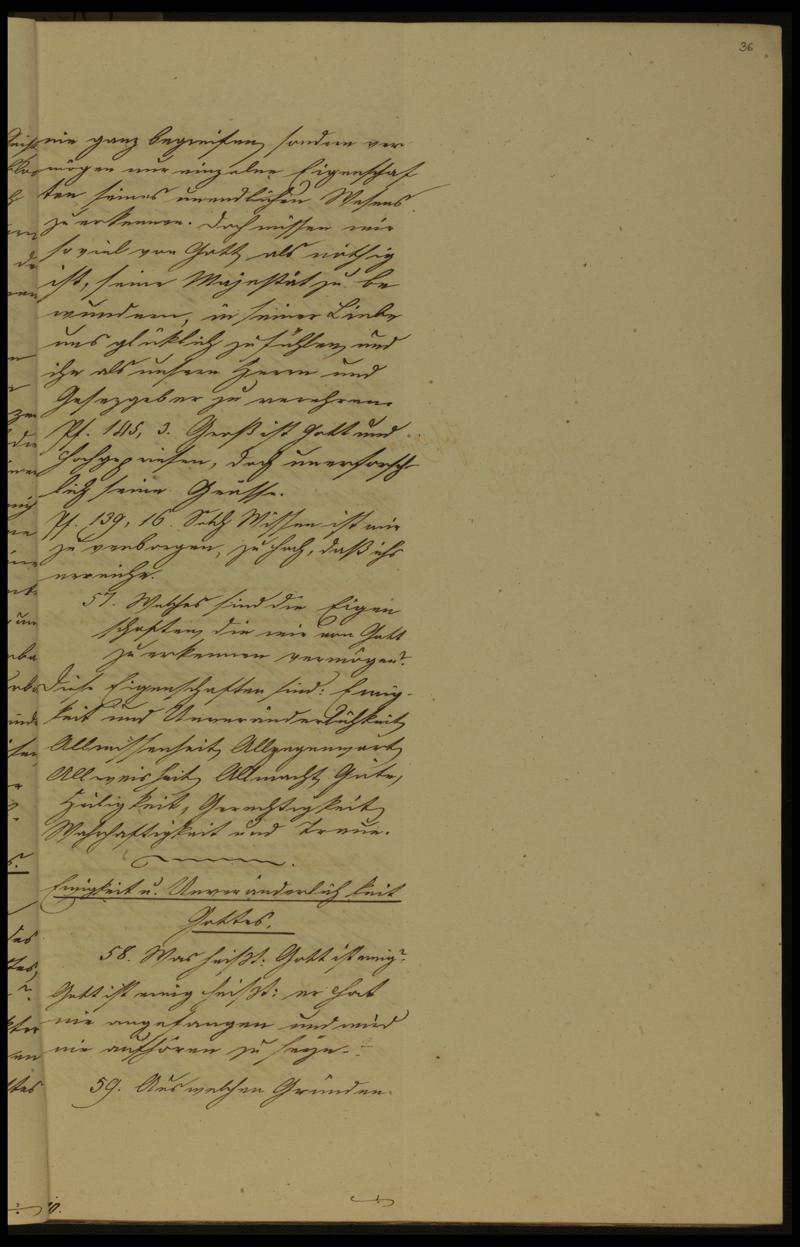 36
nie ganz begreifen, sondern ver
mögen nur einzelne Eigenschaf
ten seines unendlichen Wesens
zu erkennen. Doch wissen wir
so viel von Gott, als nöthig
ist, seine Majestät zu be
wundern, in seiner Liebe
uns glücklich zu fühlen, und
ihn als unsern Herrn und
Gesezgeber zu verehren.
Ps. 145, 3. Groß ist Gott und
hochgepriesen, doch unerforsch
lich seine Grösse.
Ps. 139, 16. Solch Wissen ist mir
zu verborgen, zu hoch, daß ichs
erreiche.
57. Welches sind die Eigen
schaften, die wir von Gott
zu erkennen vermögen?
Diese Eigenschaften sind: Ewig-
keit und Unveränderlichkeit,
Allwissenheit, Allgegenwart,
Allweisheit, Allmacht, Güte,
Heiligkeit, Gerechtigkeit,
Wahrhaftigkeit und Treue.
Ewigkeit u. Unveränderlichkeit
Gottes.
58. Was heißt: Gott ist ewig?
Gott ist ewig heißt: er hat
nie angefangen und wird
nie aufhören zu seyn.
59. Aus welchen Gründen